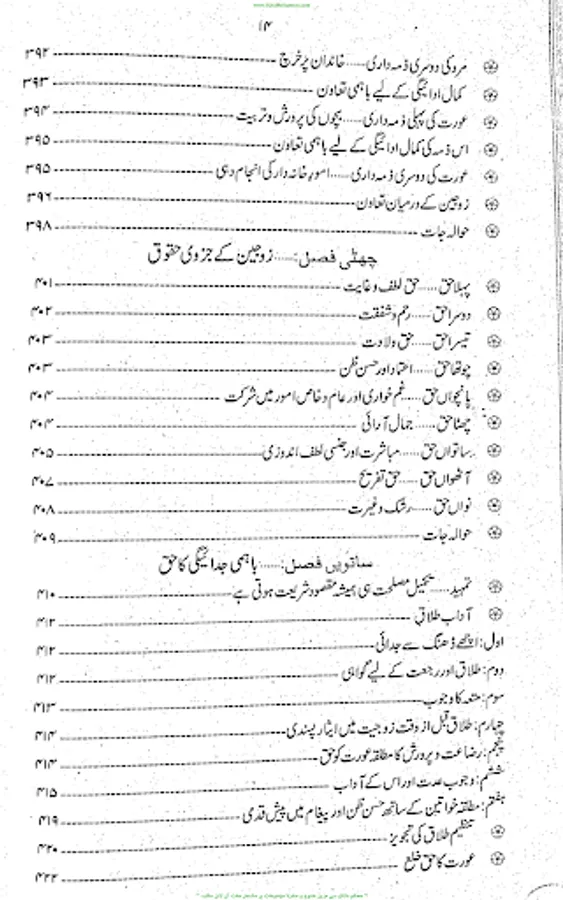 www.KitaboSunnat.com
۱۴
مرد کی دوسری ذمہ داری ..... خاندان پر خرچ ۳۹۲
کمال ادائیگی کے لیے باہمی تعاون ۳۹۳
عورت کی پہلی ذمہ داری ..... بچوں کی پرورش و تربیت ۳۹۴
اس ذمہ کی کمال ادائیگی کے لیے باہمی تعاون ۳۹۵
عورت کی دوسری ذمہ داری ..... امور خانہ دار کی انجام دہی ۳۹۵
زوجین کے درمیان تعاون ۳۹۶
حوالہ جات ۳۹۸
چھٹی فصل: ..... زوجین کے جزوی حقوق
پہلا حق ..... حق لطف و غایت ۴۰۱
دوسرا حق ..... رحم و شفقت ۴۰۲
تیسرا حق ..... حق ولادت ۴۰۳
چوتھا حق ..... اعتماد اور حسن ظن ۴۰۳
پانچواں حق ..... غم خواری اور عام و خاص امور میں شرکت ۴۰۴
چھٹا حق ..... جمال آرائی ۴۰۴
ساتواں حق ..... مباشرت اور جنسی لطف اندوزی ۴۰۵
آٹھواں حق ..... حق تفریح ۴۰۷
نواں حق ..... رشک و غیرت ۴۰۸
حوالہ جات ۴۰۹
ساتویں فصل: ..... باہمی جدائیگی کا حق
تمہید ..... تکمیل مصلحت ہی ہمیشہ مقصود شریعت ہوتی ہے ۴۱۰
آداب طلاق ۴۱۲
اول: اچھے ڈھنگ سے جدائی ۴۱۲
دوم: طلاق اور رجعت کے لیے گواہی ۴۱۲
سوم: متعہ کا وجوب ۴۱۳
چہارم: طلاق قبل از وقت زوجیت میں ایثار پسندی ۴۱۴
پنجم: رضاعت و پرورش کا مطلقہ عورت کو حق ۴۱۴
ششم: وجوب عدت اور اس کے آداب ۴۱۵
ہفتم: مطلقہ خواتین کے ساتھ حسن ظن اور پیغام میں پیش قدمی ۴۱۹
تنظیم طلاق کی تجویز ۴۲۰
عورت کا حق خلع ۴۲۲